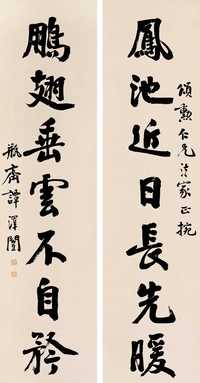 頌勳仁兄法家正捥
鳳池近日長先暖
鵬翅垂雲不自矜
瓶齋譚澤闓